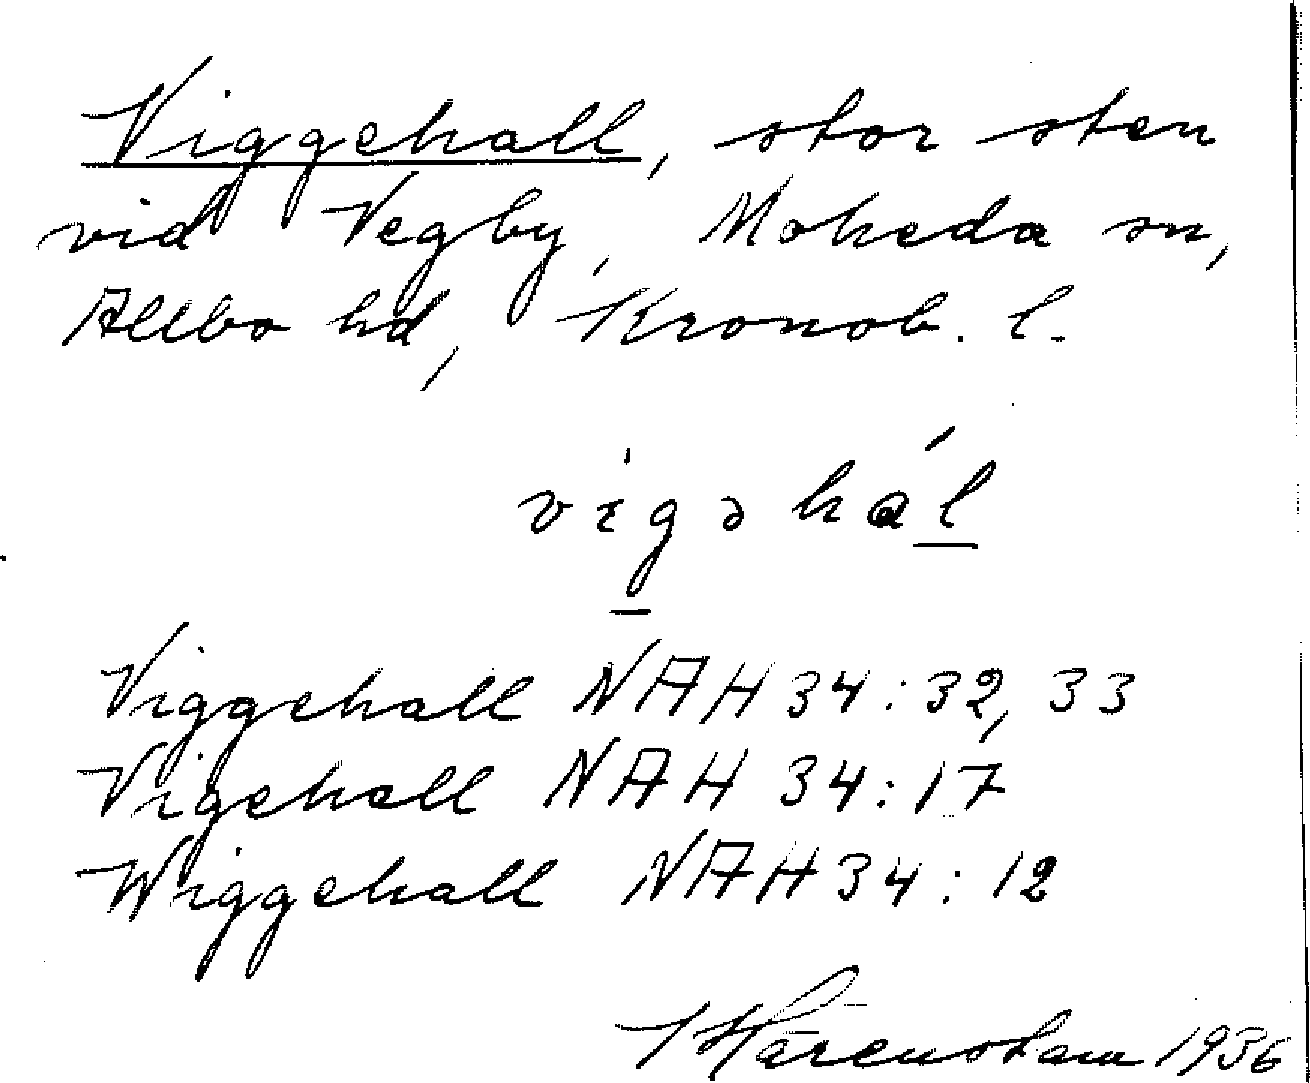 Viggehall, stor sten
vid Vegby, Moheda sn,
Allbo hd, Kronob. l.
vigəhál
Viggehall NAH 34:32, 33
Vigehall NAH 34:17
Wiggehall NAH 34:12
Härenstam 1936